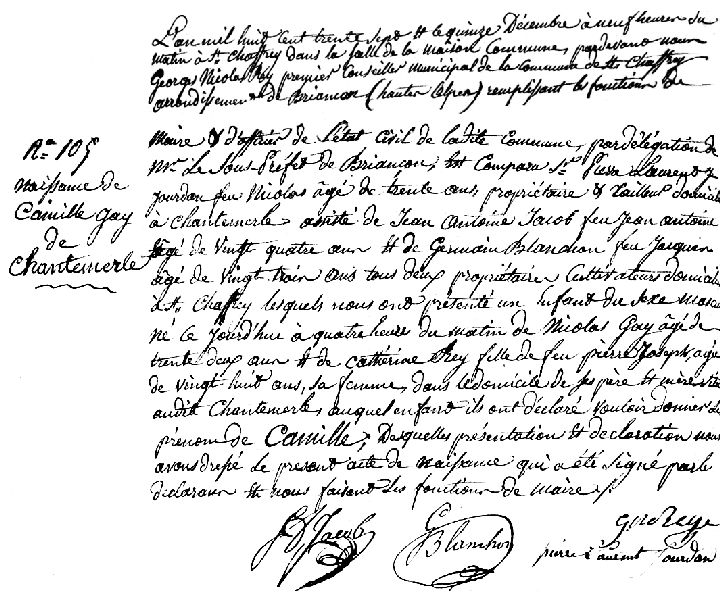 L'an mil huit cent trente sept et le quinze Décembre à neuf heures du
matin à St. Chaffrey dans la salle de la maison Commune, pardevant nous
George Nicolas Rey premier Conseiller municipal de la Commune de St. Chaffrey
arrondissement de Briancon (hautes alpes) remplissant les fonctions de
Maire & d'officier de l'état Civil de ladite Commune, par délégation de
Mr. Le Sous-Préfet de Briancon, est Comparu Sr. Pierre Laurent
Jourdan feu Nicolas âgé de trente ans propriétaire & tailleur domicilié
à Chantemerle assisté de Jean Antoine Jacob feu Jean antoine
âgé de vingt quatre ans et de Germain Blanchon feu Jacques
âgé de vingt trois ans tous deux propriétaires Cultivateurs domiciliés
à St. Chaffrey lesquels nous ont présenté un Enfant du Sexe Mascu
né le Jourd'hui à quatre heures du matin de Nicolas Gay âgé de
trente deux ans et de Cathérine Rey fille de feu pierre Joseph agée
de vingt huit ans, sa femme, dans le domicile de ses père et mère
audit Chantemerle, auquel enfant ils ont déclaré vouloir donner le
prénom de Camille; Desquelles présentation et declaration nous
avons dressé le present acte de naissance qui a été signé par le
déclarant et nous faisant les fonctions de maire
Jacob
Blanchon
pierre Laurent Jourdan
No. 105
naissance de
Camille Gay
de
Chantemerle